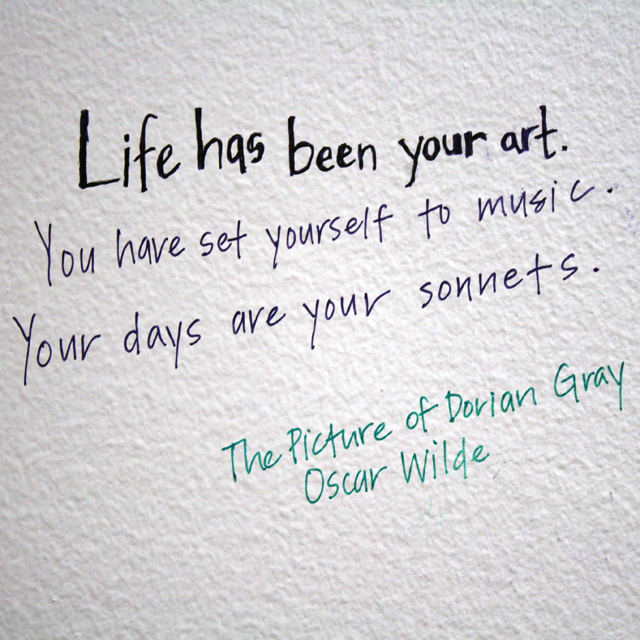 Life has been your art.
You have set yourself to music.
Your days are your sonnets.
The Picture of Dorian Gray
Oscar Wilde